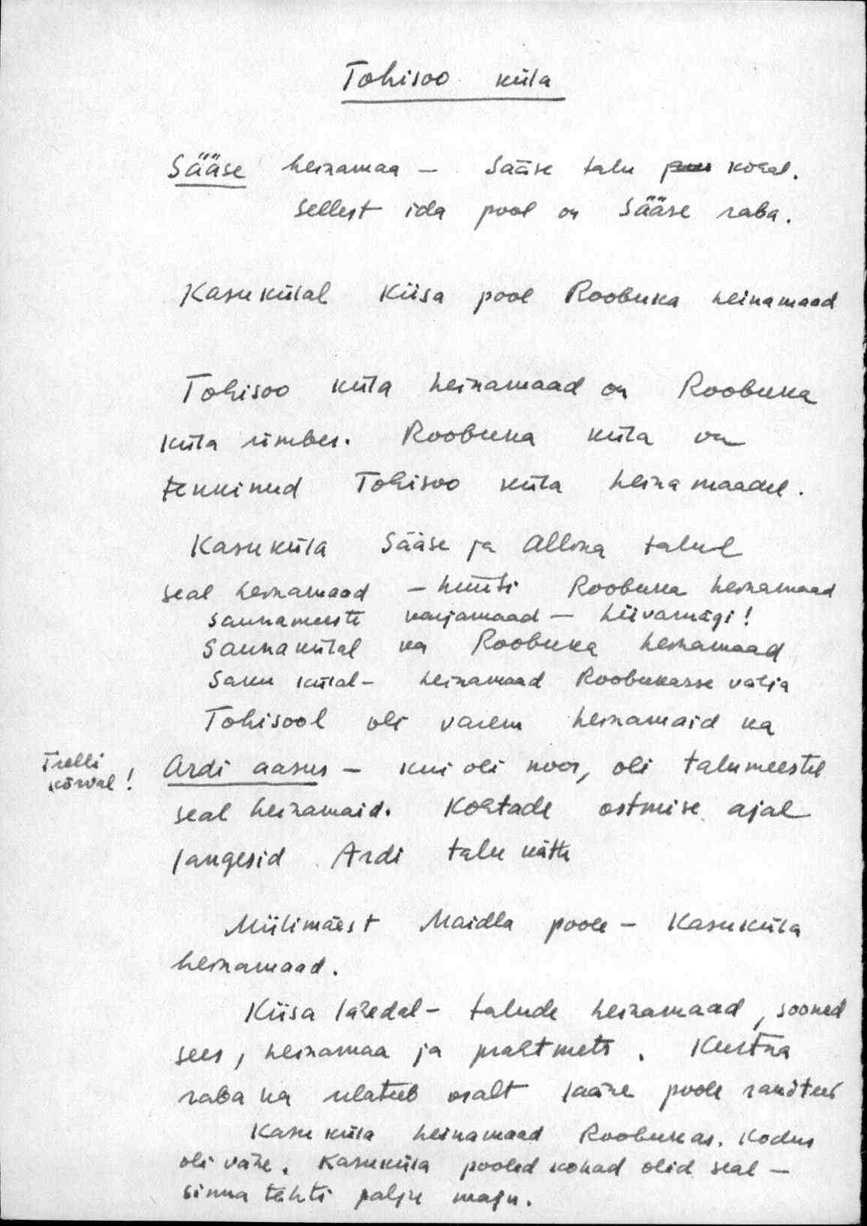 Tohisoo küla
Sääse heinamaa – Sääse talu kohal.
Sellest ida pool on Sääse raba.
Kasukülal Kiisa pool Roobuka heinamaad
Tohisoo küla heinamaad on Roobuka
küla ümber. Roobuka küla on
tekkinud Tohisoo küla heinamaadel.
Kasuküla Sääse ja Allika talul
seal heinamaad – hüüti Roobuka heinamaad
saunameeste karjamaad – Liivamägi!
Saunakülal ka Roobuka heinamaad
Saku külal – heinamaad Roobukasse välja
Tohisool oli varem heinamaid ka
Trelli
kõrval!
Ardi aasus – kui oli noor, oli talumeestel
seal heinamaid. Kohtade ostmise ajal
langesid Ardi talu kätte
Miilimäest Maidla poole – Kasuküla
heinamaad.
Kiisa lähedal – talude heinamaad, sooned
sees, heinamaa ja mets. Kurtna
raba ka ulatub osalt lääne poole raudteed
Kasuküla heinamaad Roobukas. Kodus
oli vähe. Kasuküla pooled kohad olid seal –
sinna tehti palju maju.